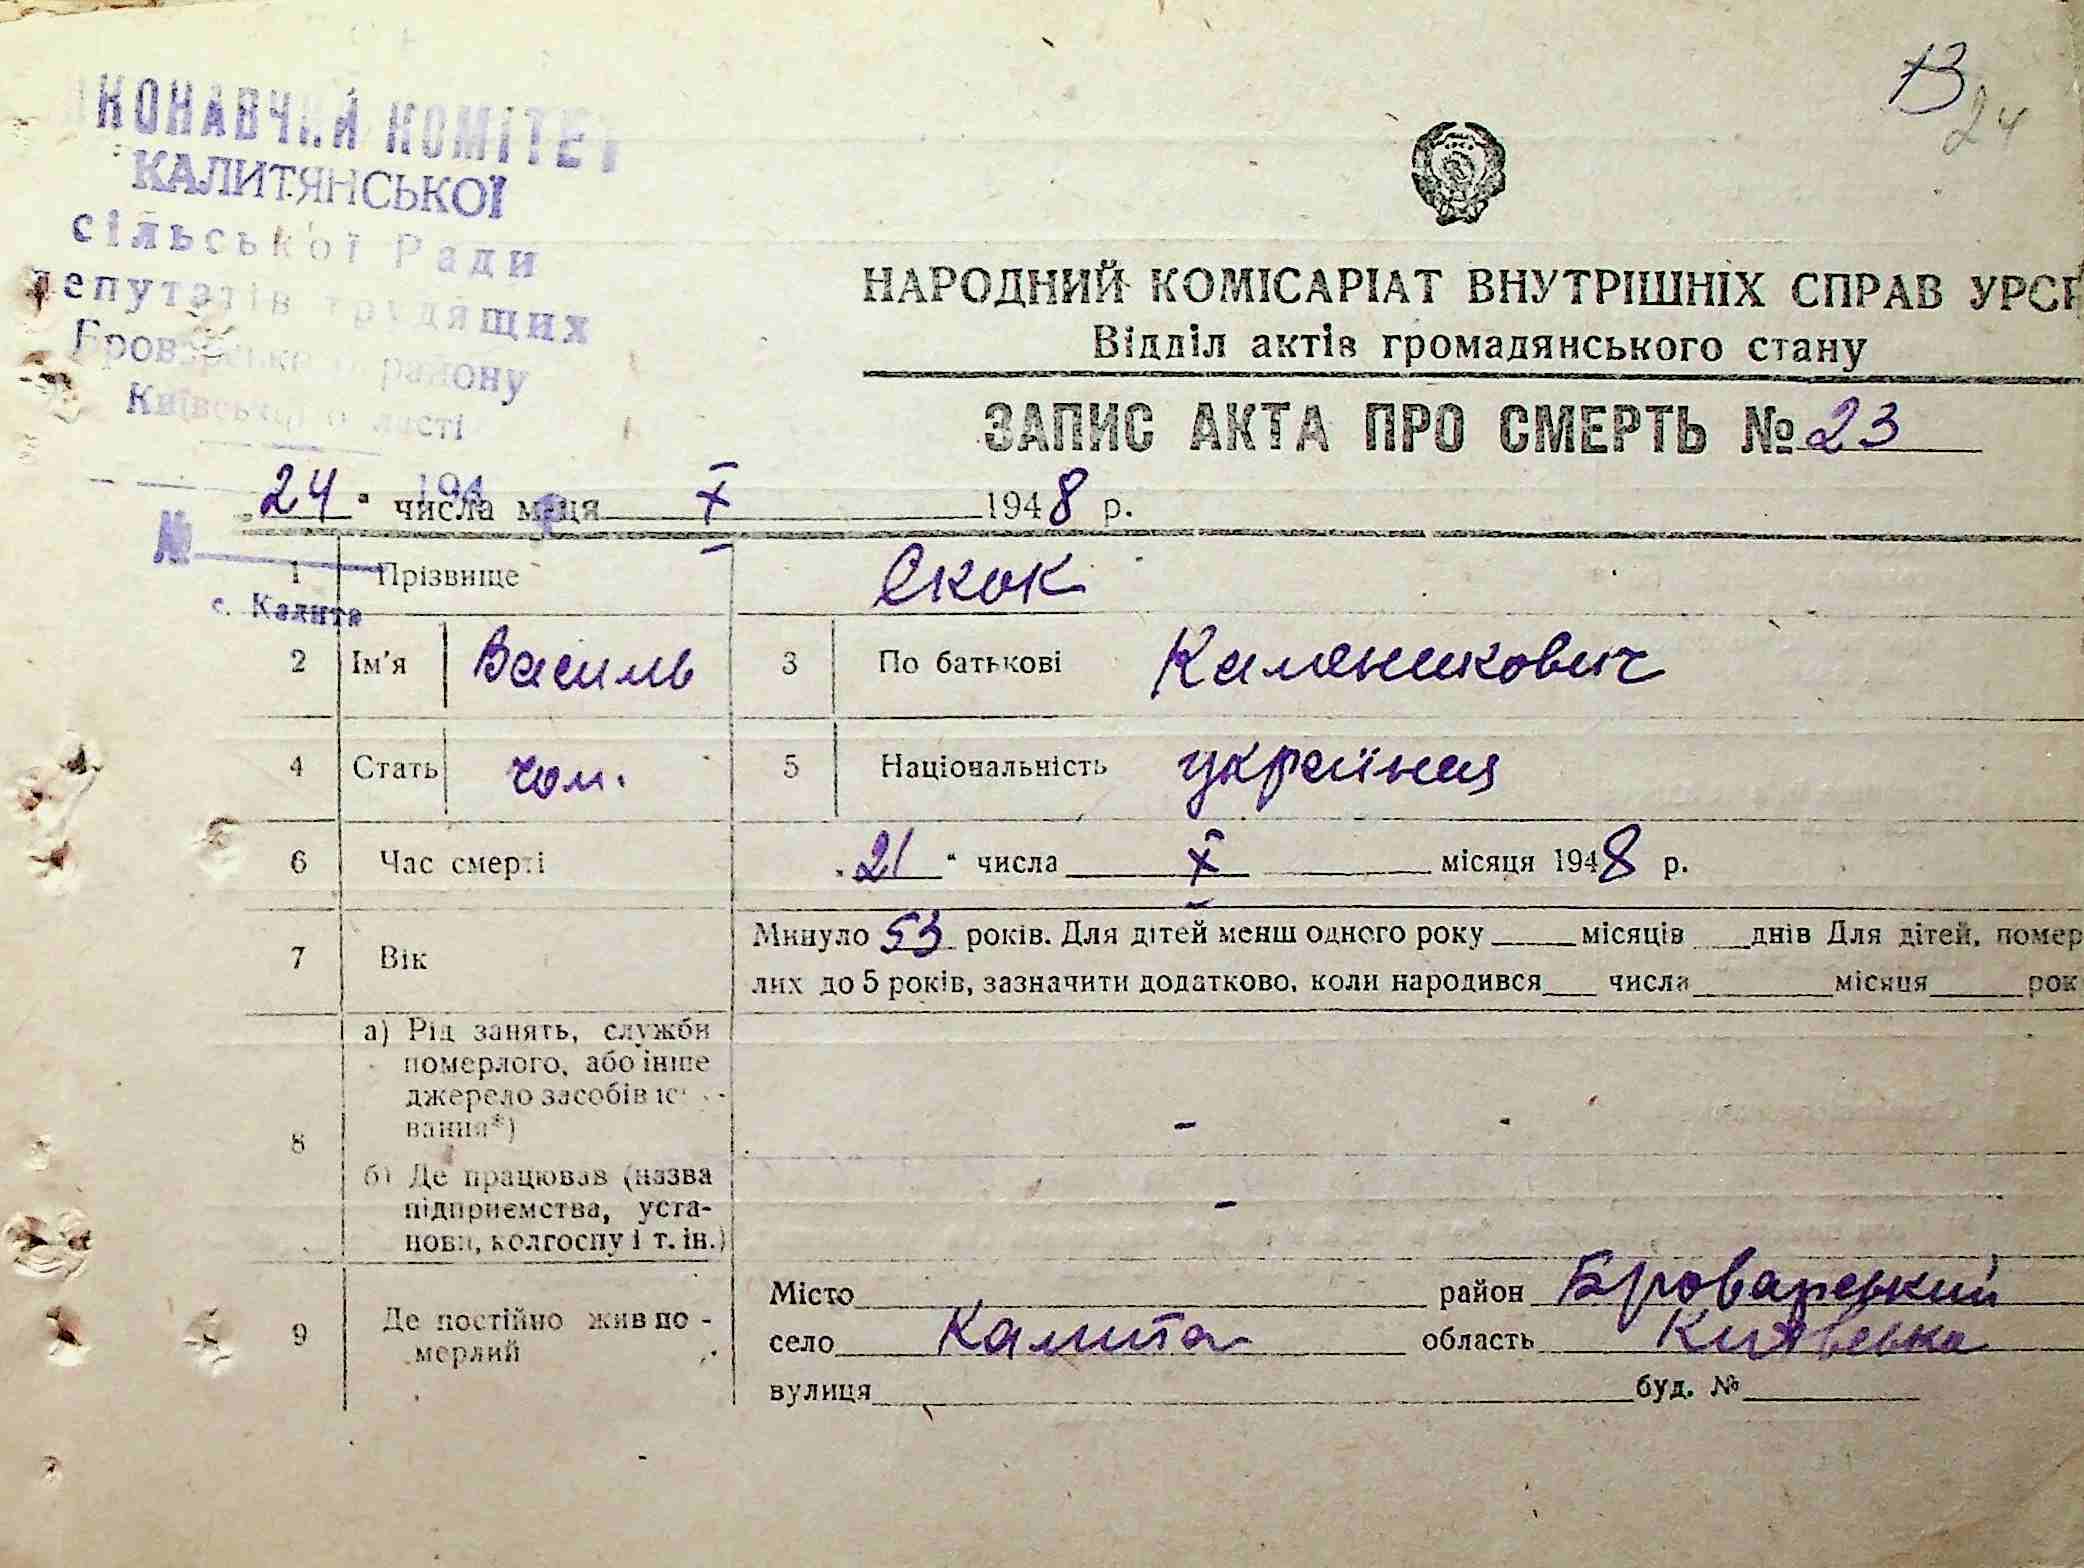 ВИКОНАВЧИЙ КОМІТЕТ
КАЛИТЯНСЬКОЇ
сільської Ради
депутатів трудящих
Броварського району
Київської області
194 р
№
с. Калита
13
24
НАРОДНИЙ КОМІСАРІАТ ВНУТРІШНІХ СПРАВ УРСР
Відділ актів громадянського стану
ЗАПИС АКТА ПРО СМЕРТЬ № 23
24 " числа м-ця X 1948 р.
1 Прізвище Скок
2 Ім'я Василь 3 По батькові Каленикович
4 Стать чол. 5 Національність українец
6 Час смерті „21 " числа X місяця 1948 р.
7 Вік Минуло 53 років. Для дітей менш одного року місяців днів Для дітей, помер
лих до 5 років, зазначити додатково, коли народився числа місяця рок
8 а) Рід занять, служби
померлого, або інше
джерело засобів існу-
вання*) -
б) Де працював (назва
підприємства, уста-
нови, колгоспу і т. ін.) -
9 Де постійно жив по-
мерлий
Місто район Броварський
село Калита область Київська
вулиця буд. №